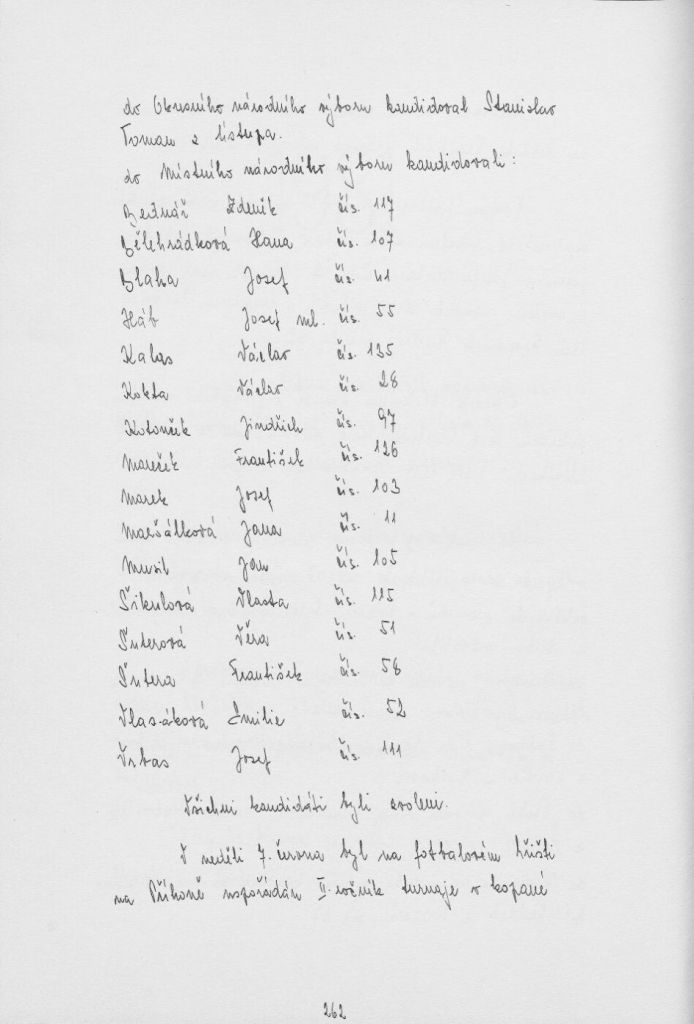 do Okresního národního výboru kandidoval Stanislav
Toman z Listupa.
do Místního národního výboru kandidovali:
Bednář Zdeněk čís. 117
Bělehrádková Hana čís. 107
Blaha Josef čís. 41
Háb Josef ml. čís. 55
Kalas Václav čís. 135
Kokta Václav čís. 28
Kotouček Jindřich čís. 97
Mareček František čís. 126
Marek Josef čís. 103
Maršálková Jana čís. 11
Musil Jan čís. 105
Šikulová Vlasta čís. 115
Šuterová Věra čís. 51
Šutera František čís. 58
Vlasáková Emilie čís. 52
Vrbas Josef čís. 111
Všichni kandidáti byli zvoleni.
V neděli 7. června byl na fotbalovém hřišti
na Příhoně uspořádán II. ročník turnaje v kopané
262